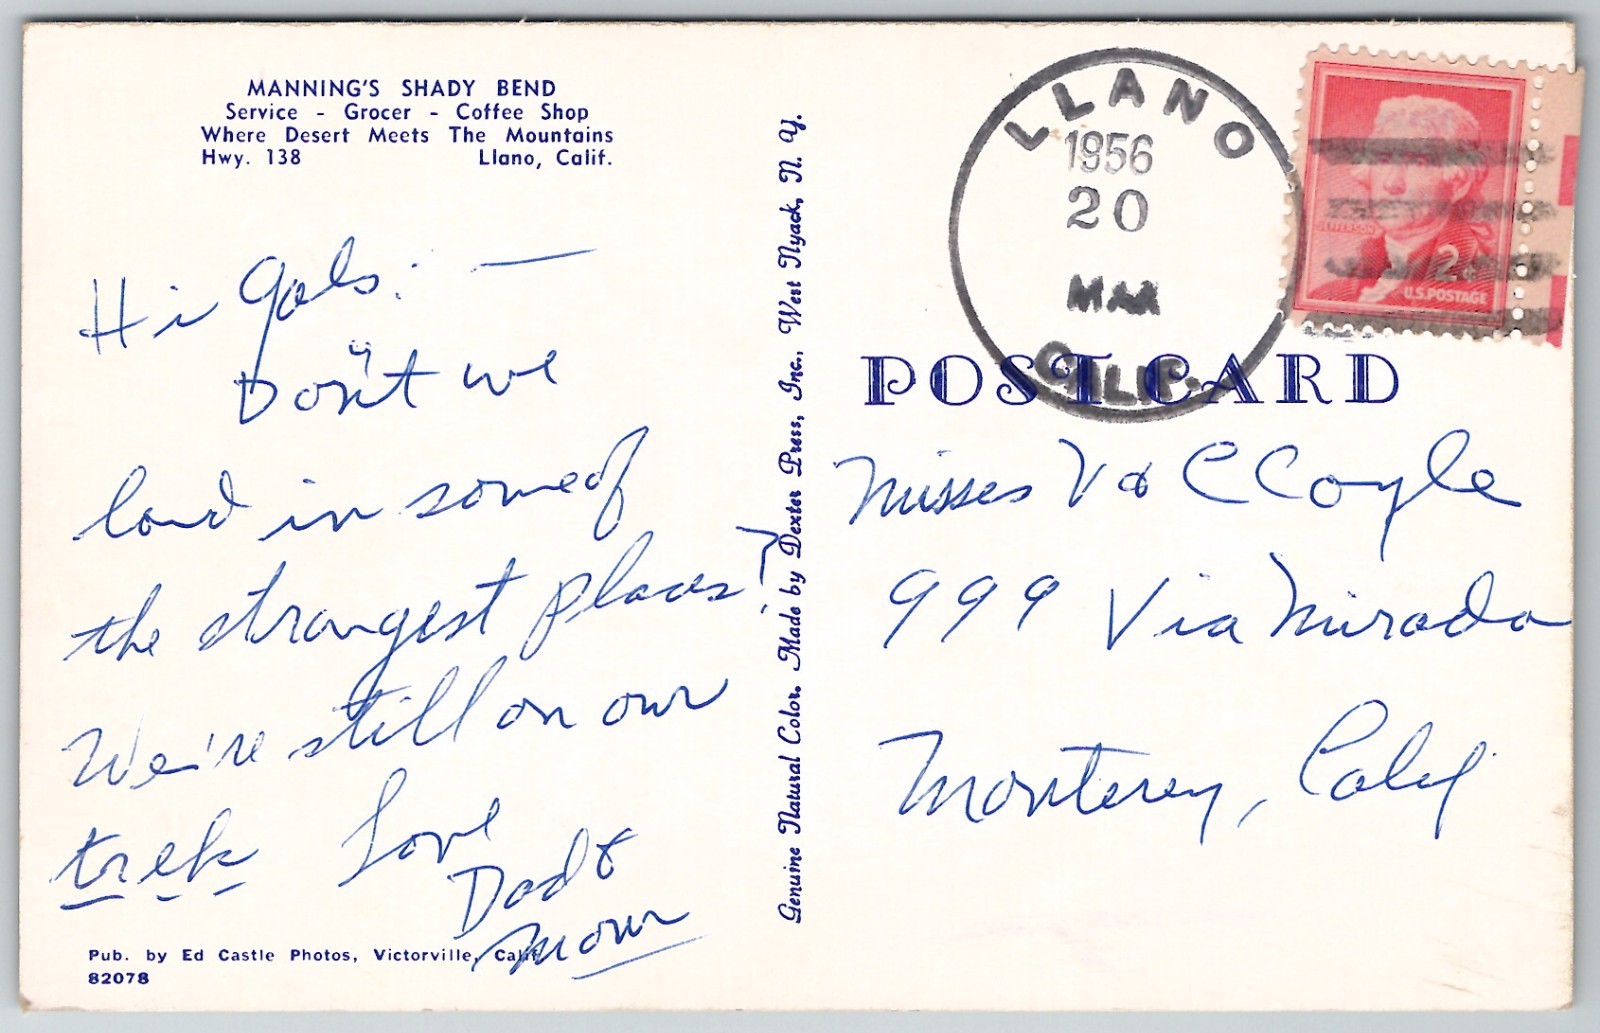 MANNING'S SHADY BEND
Service - Grocer - Coffee Shop
Where Desert Meets The Mountains
Hwy. 138 Llano, Calif.
Hi Gals: —
Don't we
land in some of
the strangest places?
We're still on our
trek Love
Dad &
Mom
Pub. by Ed Castle Photos, Victorville, Calif.
82078
Genuine Natural Color. Made by Dexter Press, Inc., West Nyack, N. Y.
LLANO
1956
20
MAR
CALIF.
JEFFERSON
2¢
U.S. POSTAGE
POST CARD
Misses V & C Coyle
999 Via Mirada
Monterey, Calif